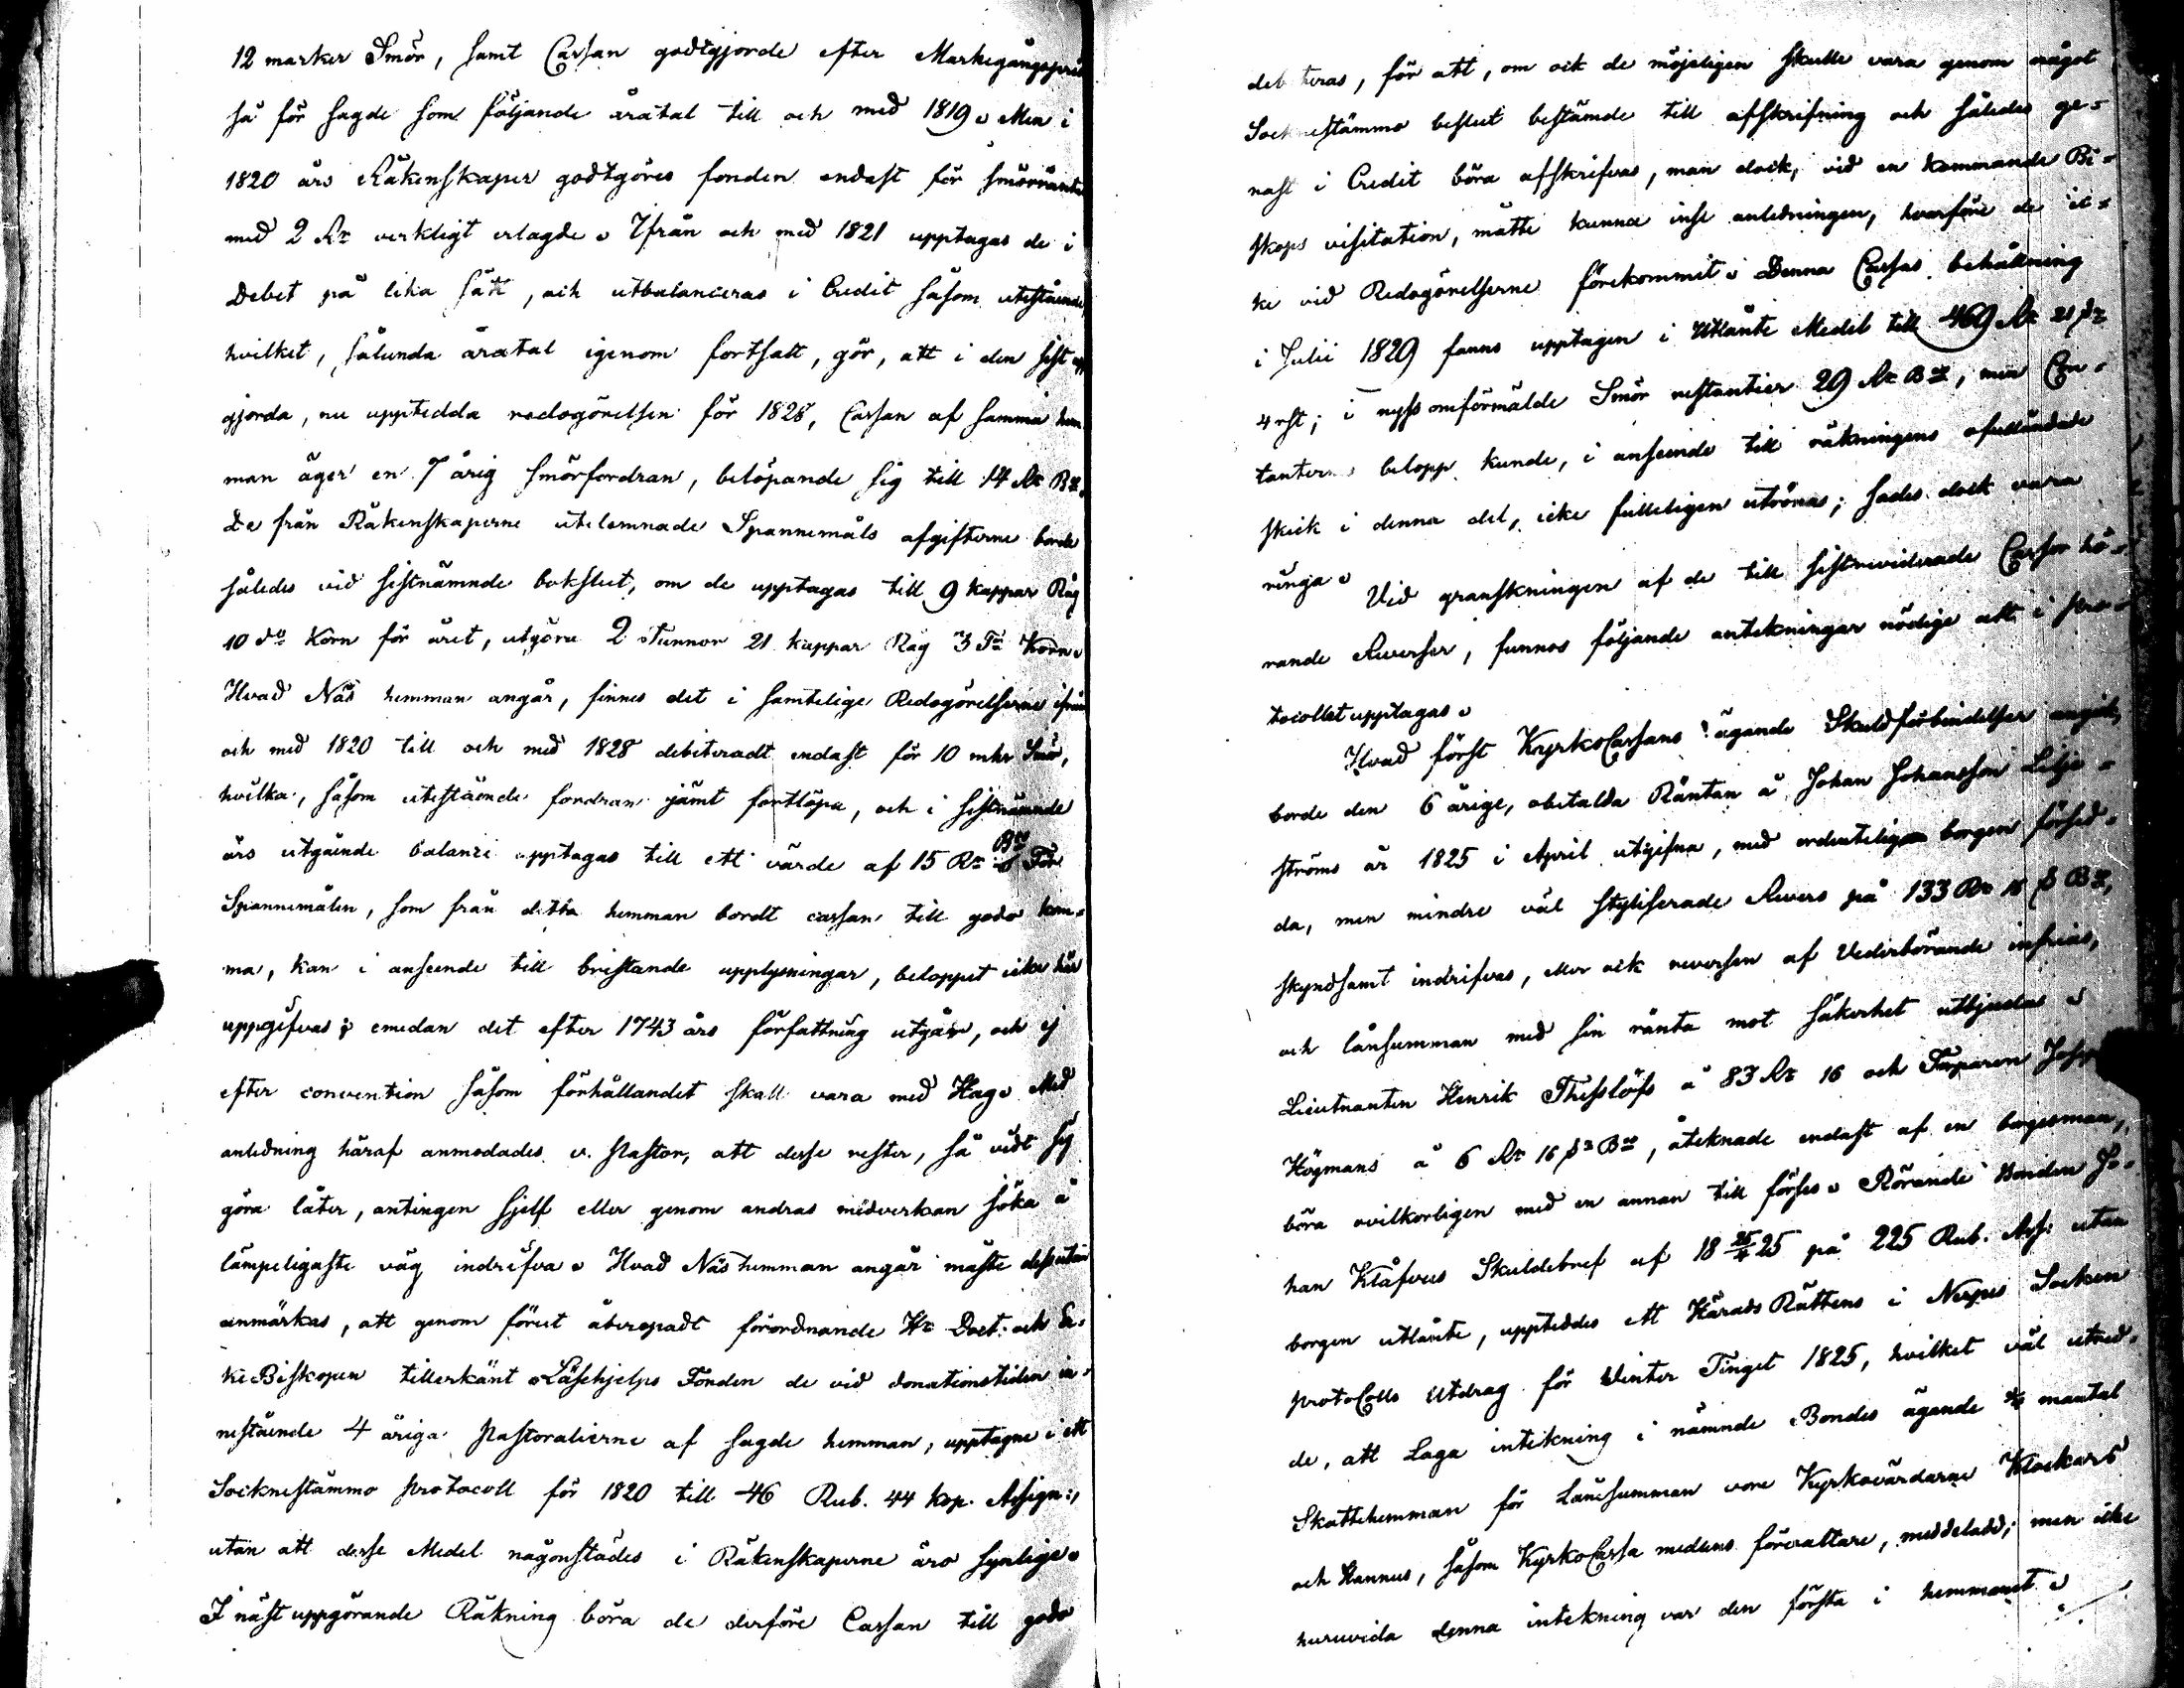 12 marker Smör, samt Cassan godtgjorde efter Markegångspris
så för sagde som följande åratal till och med 1819. Men i
1820 års Räkenskaper godtgöres fonden endast för smörränta
med 2 Rr verkligt erlagde. Ifrån och med 1821 upptagas de i
Debet på lika sätt, och utbalanceras i Credit såsom utestående,
hvilket, sålunda åratal igenom fortsatt, gör, att i den sist upp
gjorda, nu upptedda redogörelsen för 1828, Cassan af samma hem
man äger en 7 årig smörfordran, belöpande sig till 14 Rr Bco.
De från Räkenskaperne utelemnade Spannemåls afgifterne borde
således vid sistnämnde bokslut, om de upptagas till 9 kappar Råg
10 do Korn för året, utgöra 2 Tunnor 21 kappar Råg 3 Tr Korn.
Hvad Näs hemman angår, finnes det i samtelige Redogörelserne ifrån
och med 1820 till och med 1828 debiteradt endast för 10 mkr Smör,
hvilka, såsom utestående fordran jämt fortlöpa, och i sistnämnde
års utgående balance upptagas till ett värde af 15 Rr Bco För
Spannemålen, som från detta hemman bordt cassan till godo kom-
ma, kan i anseende till bristande upplysningar, beloppet icke här
uppgifvas; emedan det efter 1743 års författning utgår, och ej
efter convention såsom förhållandet skall vara med Hag. Med
anledning häraf anmodades v. Pastor, att desse rester, så vidt sig
göra låter, antingen sjelf eller genom andras medverkan söka å
lämpeligaste väg indrifva. Hvad Näs hemman angår måste dessutan
anmärkas, att genom förut åberopadt förordnande Hr Doct. och Er-
keBiskopen tillerkänt Läsehjelps Fonden de vid donationstiden in-
nestående 4 åriga Pastoralierne af sagde hemman, upptagne i ett
Socknestämmo protocoll för 1820 till 46 Rub. 44 kop. Assign:,
utan att desse Medel någonstädes i Räkenskaperne äro synlige.
I näst uppgörande Räkning böra de derföre Cassan till godo
debiteras, för att, om ock de möjeligen skulle vara genom något
Socknestämmo beslut bestämde till afskrifning och således ge-
nast i Credit böra afskrifvas, man dock, vid en kommande Bi-
skops visitation, måtte kunna inse anledningen, hvarföre de ic-
ke vid Redogörelserne förekommit. Denna Cassas behållning
i Julii 1829 fanns upptagen i Utlånte Medel till 469 Rr 21 sk
4 rst; i nyss omförmälde Smör restantier 29 Rr Bco, men Con-
tanternas belopp kunde, i anseende till räkningens ofulländade
skick i denna del, icke fulleligen utrönas; sades dock vara
ringa. Vid granskningen af de till sistreviderade Cassor hö-
rande Reverser, funnos följande antekningar nödige att i Pro-
tocollet upptagas.
Hvad först KyrkoCassans ägande Skuldförbindelser angick,
borde den 6 årige, obetalda Räntan å Johan Johansson Lilje-
ströms år 1825 i April utgifna, med ordenteligen borgen försed-
da, men mindre väl styliserade Revers på 133 Rr 16 s Bco,
skyndsamt indrifvas, eller ock reversen af Vederbörande infrias,
och lånsumman med sin ränta mot säkerhet utbjudas.
Lieutnanten Henrik Thesslöfs å 83 Rr 16 och Torparen
Högmans å 6 Rr 16 sk Bco, åteknade endast af en borgesman,
böra ovilkorligen med en annan till förses. Rörande Bonden Jo-
han Klåfvus Skuldebref af 18 25/4 25 på 225 Rub. Ass: utan
borgen utlånte, uppteddes ett Härads Rättens i Nerpes Socken
protoColls Utdrag för Winter Tinget 1825, hvilket väl utred-
de, att Laga intekning i nämnde Bondes ägande mantal
Skattehemman för Lånesumman vore Kyrkovärdarne Klockars
och Hannus, såsom KyrkoCassa medlens förvaltare, meddelad; men icke
huruvida denna intekning var den första i hemmanet.